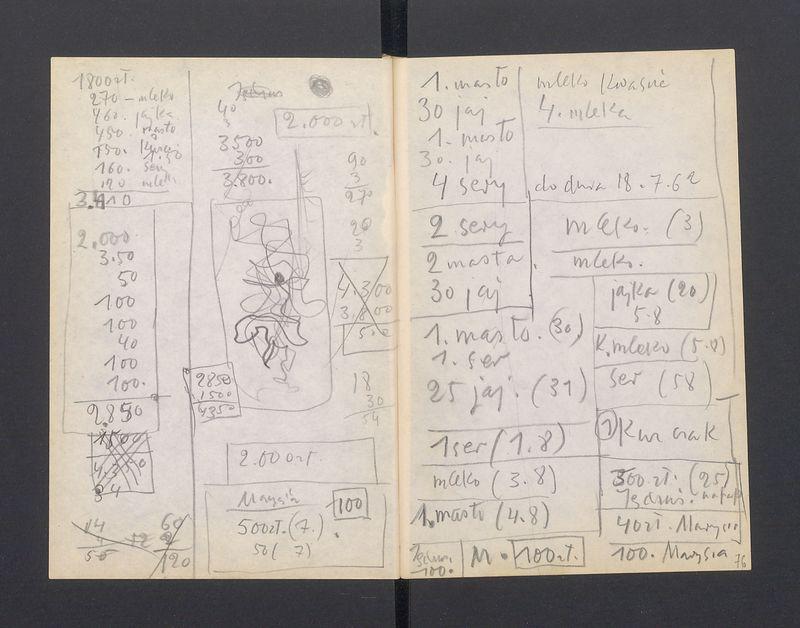 1800 zł.
270 – mleko
460. jajka
450. masło
150.
160. ser
120 mleko
3.410
2.000
3.50
50
100
100
40
100
100.
2850
14
50
12
60
2
120
40
3
3.500
300
3.800.
2.000 zł.
90
3
270
20
3
4.300
3.800
500
2850
1500
4350
18
30
54
2.000 zł.
Marysia
100
500 zł. (7.)
50 ( 7)
1. masło
30 jaj
1. masło
30. jaj
4 sery
2 sery
2 masła
30 jaj
1. masło. (30)
1. ser
25 jaj. (31)
1 ser (1.8)
mleko (3.8)
1. masło (4.8)
100.
M. 100 zł.
mleko kwaśne
4. mleka
do dnia 18.7.62
mleko. (3)
mleko.
jajka (20)
5.8
K. mleko (5.8)
Ser (58)
1 Kurczak
300 zł. (25)
Jędruś.
40 zł. Marysia
100. Marysia
76